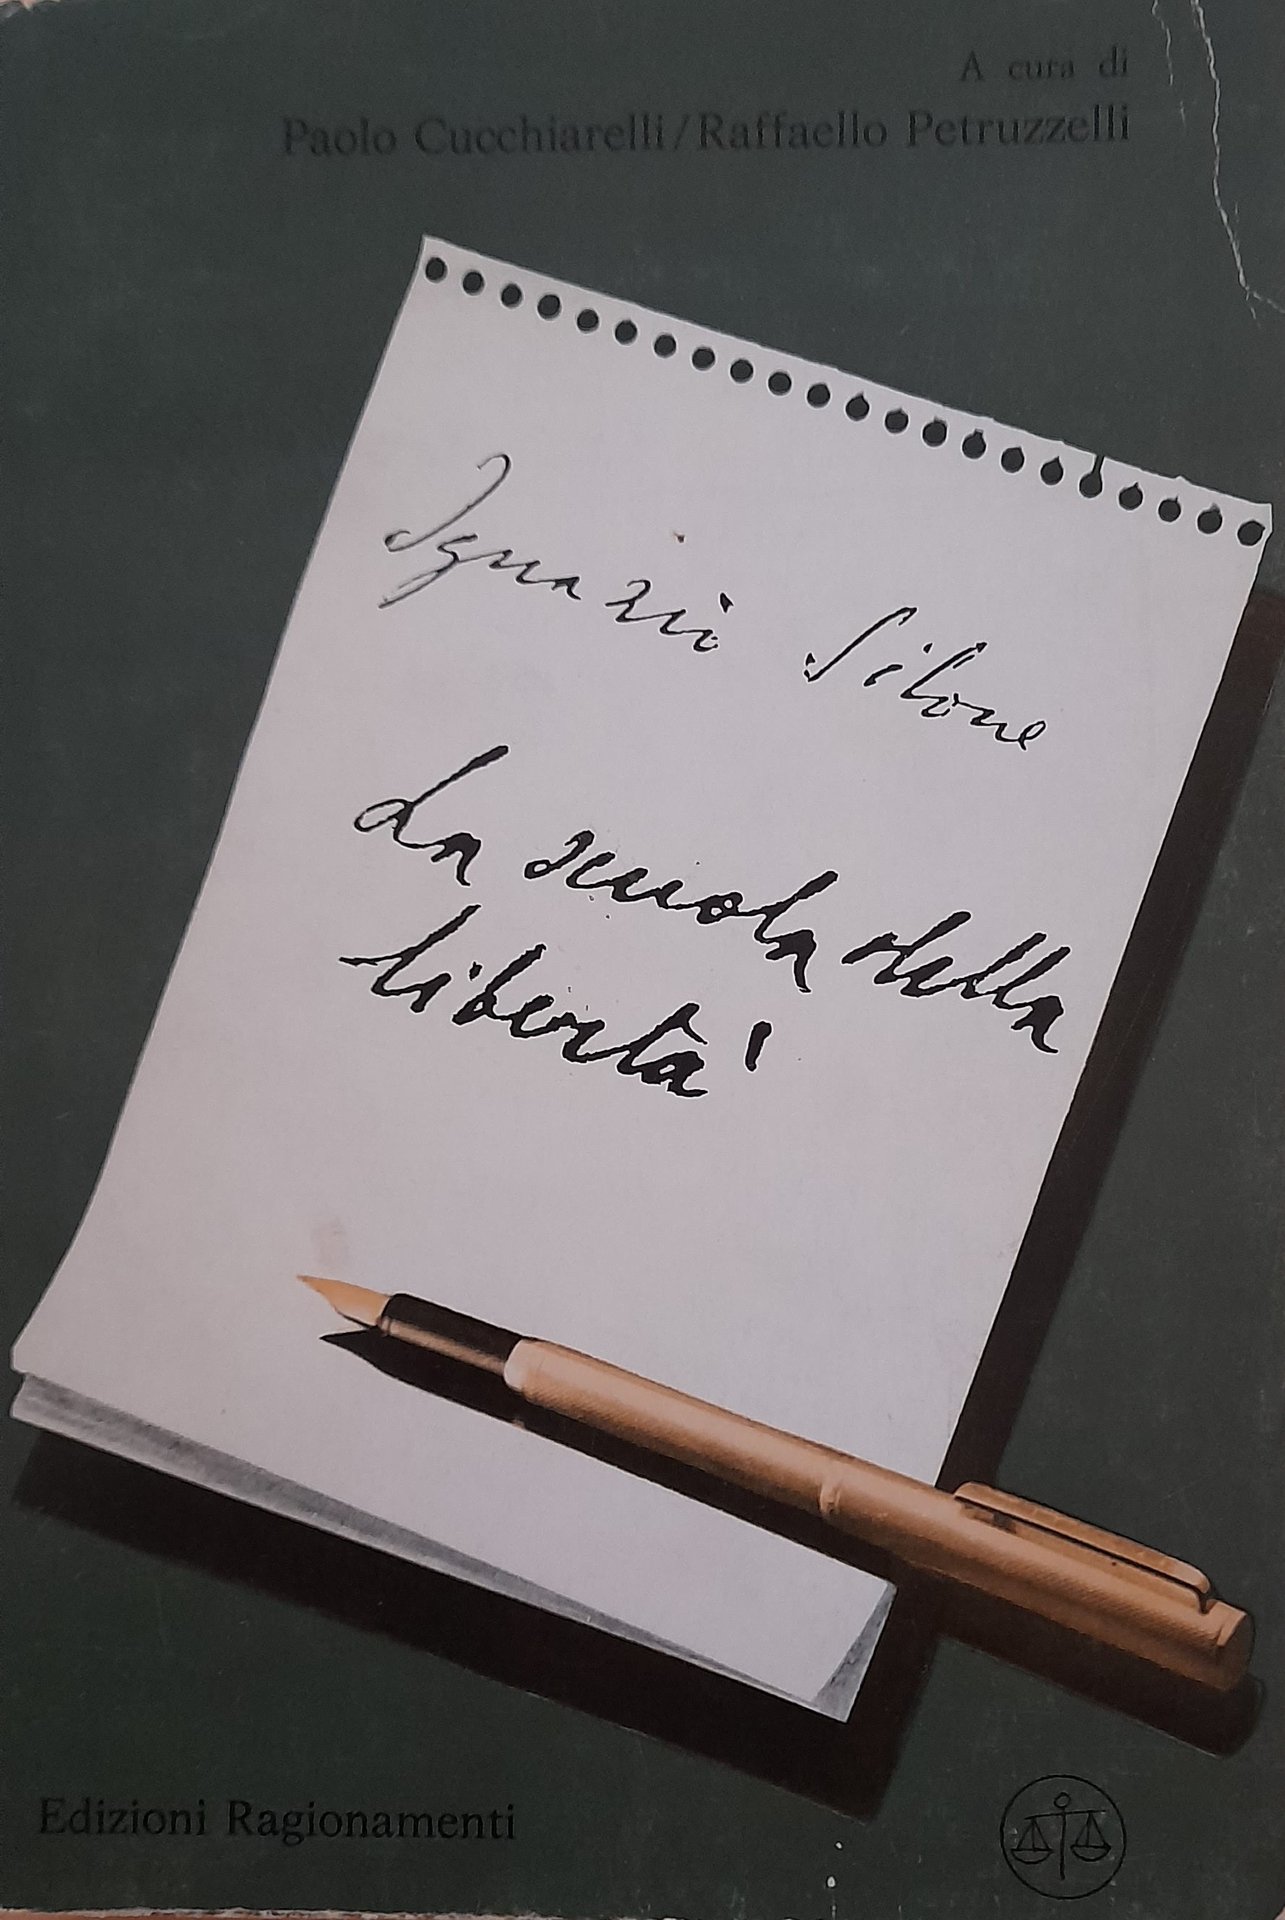 A cura di
Paolo Cucchiarelli/Raffaello Petruzzelli
Ignazio Silone
La scuola della
libertà
Edizioni Ragionamenti